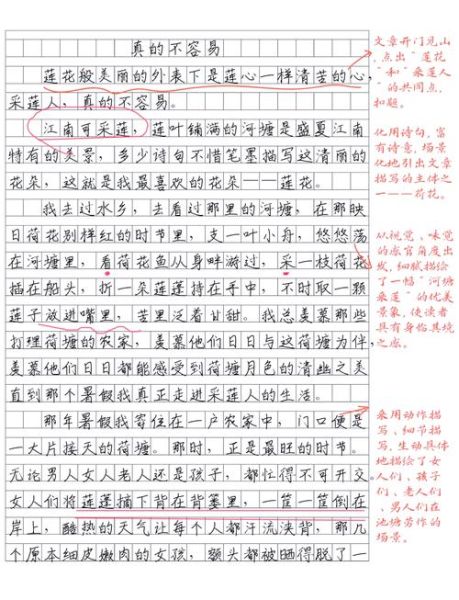 真的不容易
莲花般美丽的外表下是莲心一样清苦的心，
采莲人，真的不容易。
江南可采莲，莲叶铺满的河塘是盛夏江南
特有的美景，多少诗句不惜笔墨描写这清丽的
花朵，这就是我最喜欢的花朵——莲花。
我去过水乡，去看过那里的河塘，在那映
日荷花别样红的时节里，支一叶小舟，悠悠荡
在河塘里，看荷花鱼从身畔游过，采一枝荷花
插在船头，折一朵莲蓬持在手中，不时取一颗
莲子放进嘴里，苦里泛着甘甜。我总羡慕那些
打理荷塘的农家，羡慕他们日日与这荷塘为伴，
羡慕他们日日都能感受到荷塘月色的清幽之美
直到那个暑假我真正走进采莲人的生活。
那年暑假我寄住在一户农家中，门口便是
一大片接天的荷塘。那时，正是最旺的时节。
无论男人女人老人还是孩子，都忙得不可开交。
女人们将莲蓬摘下背在背篓里，一筐一筐倒在
岸上，酷热的天气让每个人都汗流浃背，那几
个原本细皮嫩肉的女孩，额头都被晒得脱了一
文章开门见山
，点出“莲花
”和“采莲人
”的共同点，
扣题。
化用诗句，富
有诗意，场景
化地引出文章
描写的主体之
一——荷花。
从视觉、味觉
的感官角度出
发，细腻描绘
了一幅“河塘
采莲”的优美
景象，使读者
具有身临其境
之感。
采用动作描
写、细节描
写，生动具体
地描绘了女
人们、孩子
们、老人们
、男人们在
池塘劳作的
场景。